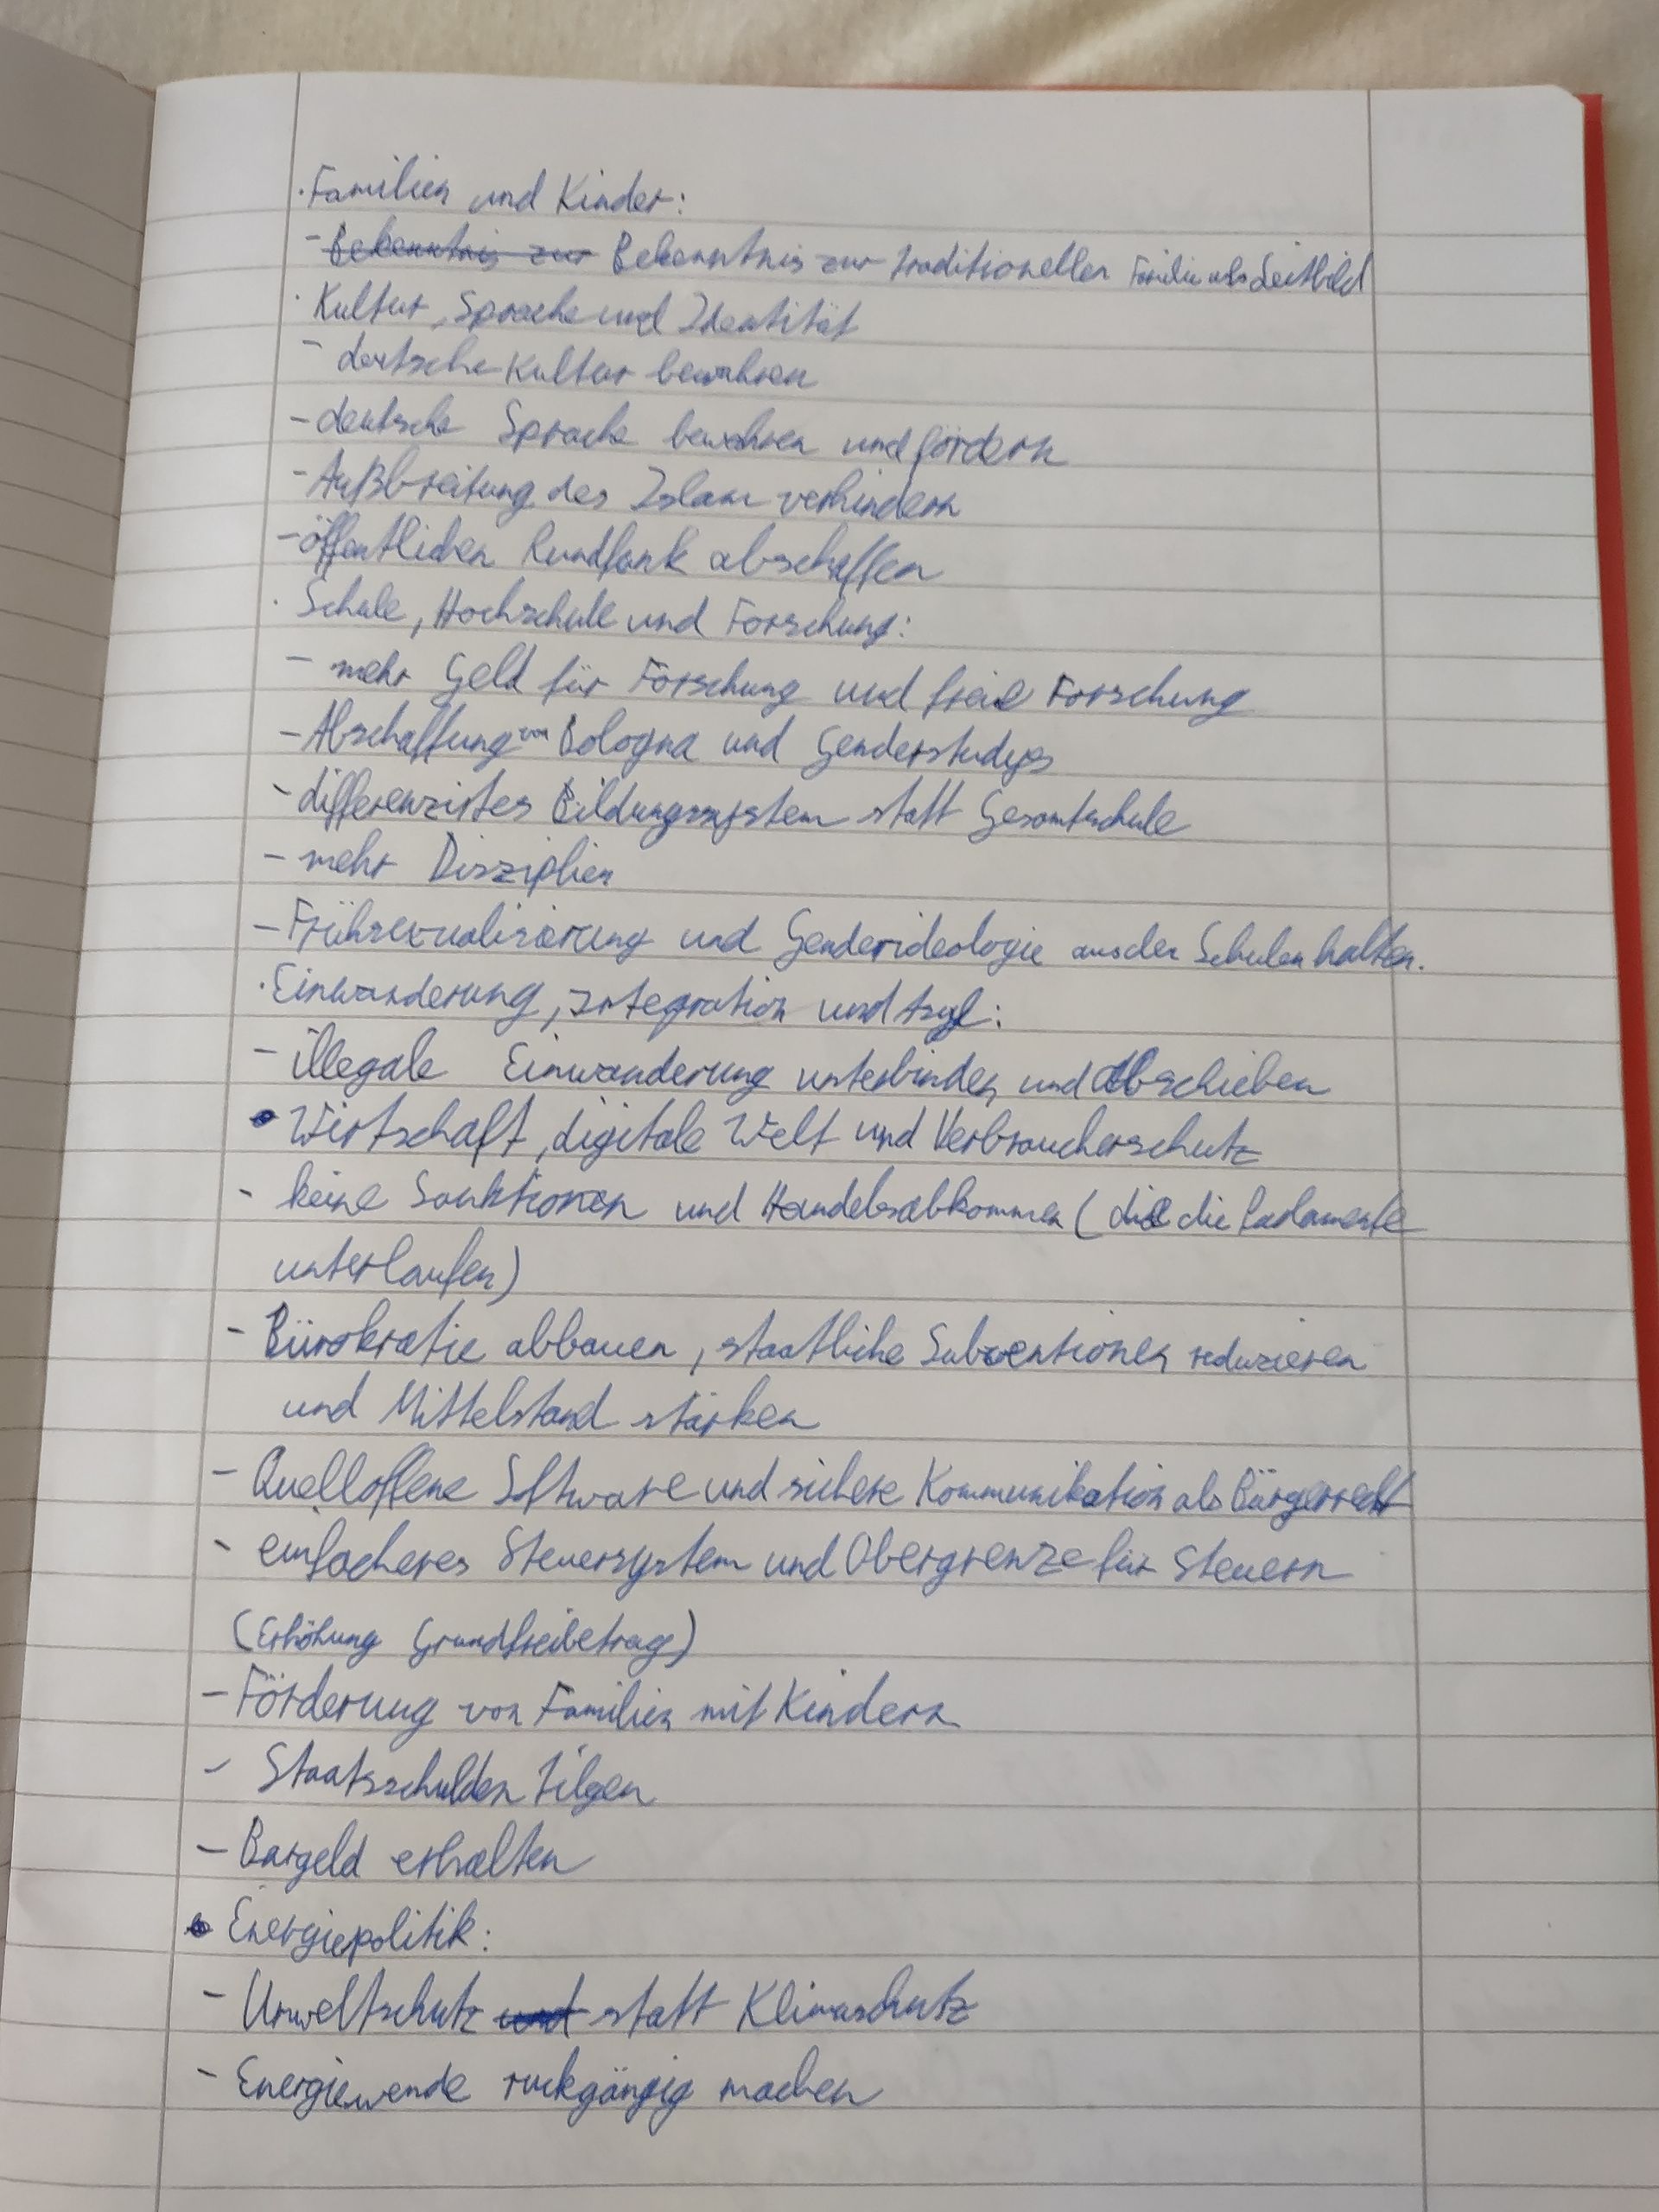 · Familien und Kinder:
- Bekenntnis zur Bekenntnis zur traditionellen Familie als Leitbild
· Kultur, Sprache und Identität
- deutsche Kultur bewahren
- deutsche Sprache bewahren und fördern
- Außbreitung des Islam verhindern
- öffentlichen Rundfunk abschaffen
· Schule, Hochschule und Forschung:
- mehr Geld für Forschung und freie Forschung
- Abschaffung von Bologna und Genderstudys
- differenzirtes Bildungssystem statt Gesamtschule
- mehr Disziplien
- Frühsexualisierung und Genderideologie aus den Schulen halten.
· Einwanderung, Integration und Asyl:
- illegale Einwanderung unterbinden und Abschieben
• Wirtschaft, digitale Welt und Verbraucherschutz
- keine Sanktionen und Handelsabkommen (die die Parlamente
unterlaufen)
- Bürokratie abbauen, staatliche Subventionen reduzieren
und Mittelstand stärken
- Quelloffene Software und sichere Kommunikation als Bürgerrecht
- einfacheres Steuersystem und Obergrenze für Steuern
(Erhöhung Grundfreibetrag)
- Förderung von Familien mit Kindern
- Staatsschulden tilgen
- Bargeld erhalten
• Energiepolitik:
- Umweltschutz und statt Klimaschutz
- Energiewende rückgängig machen